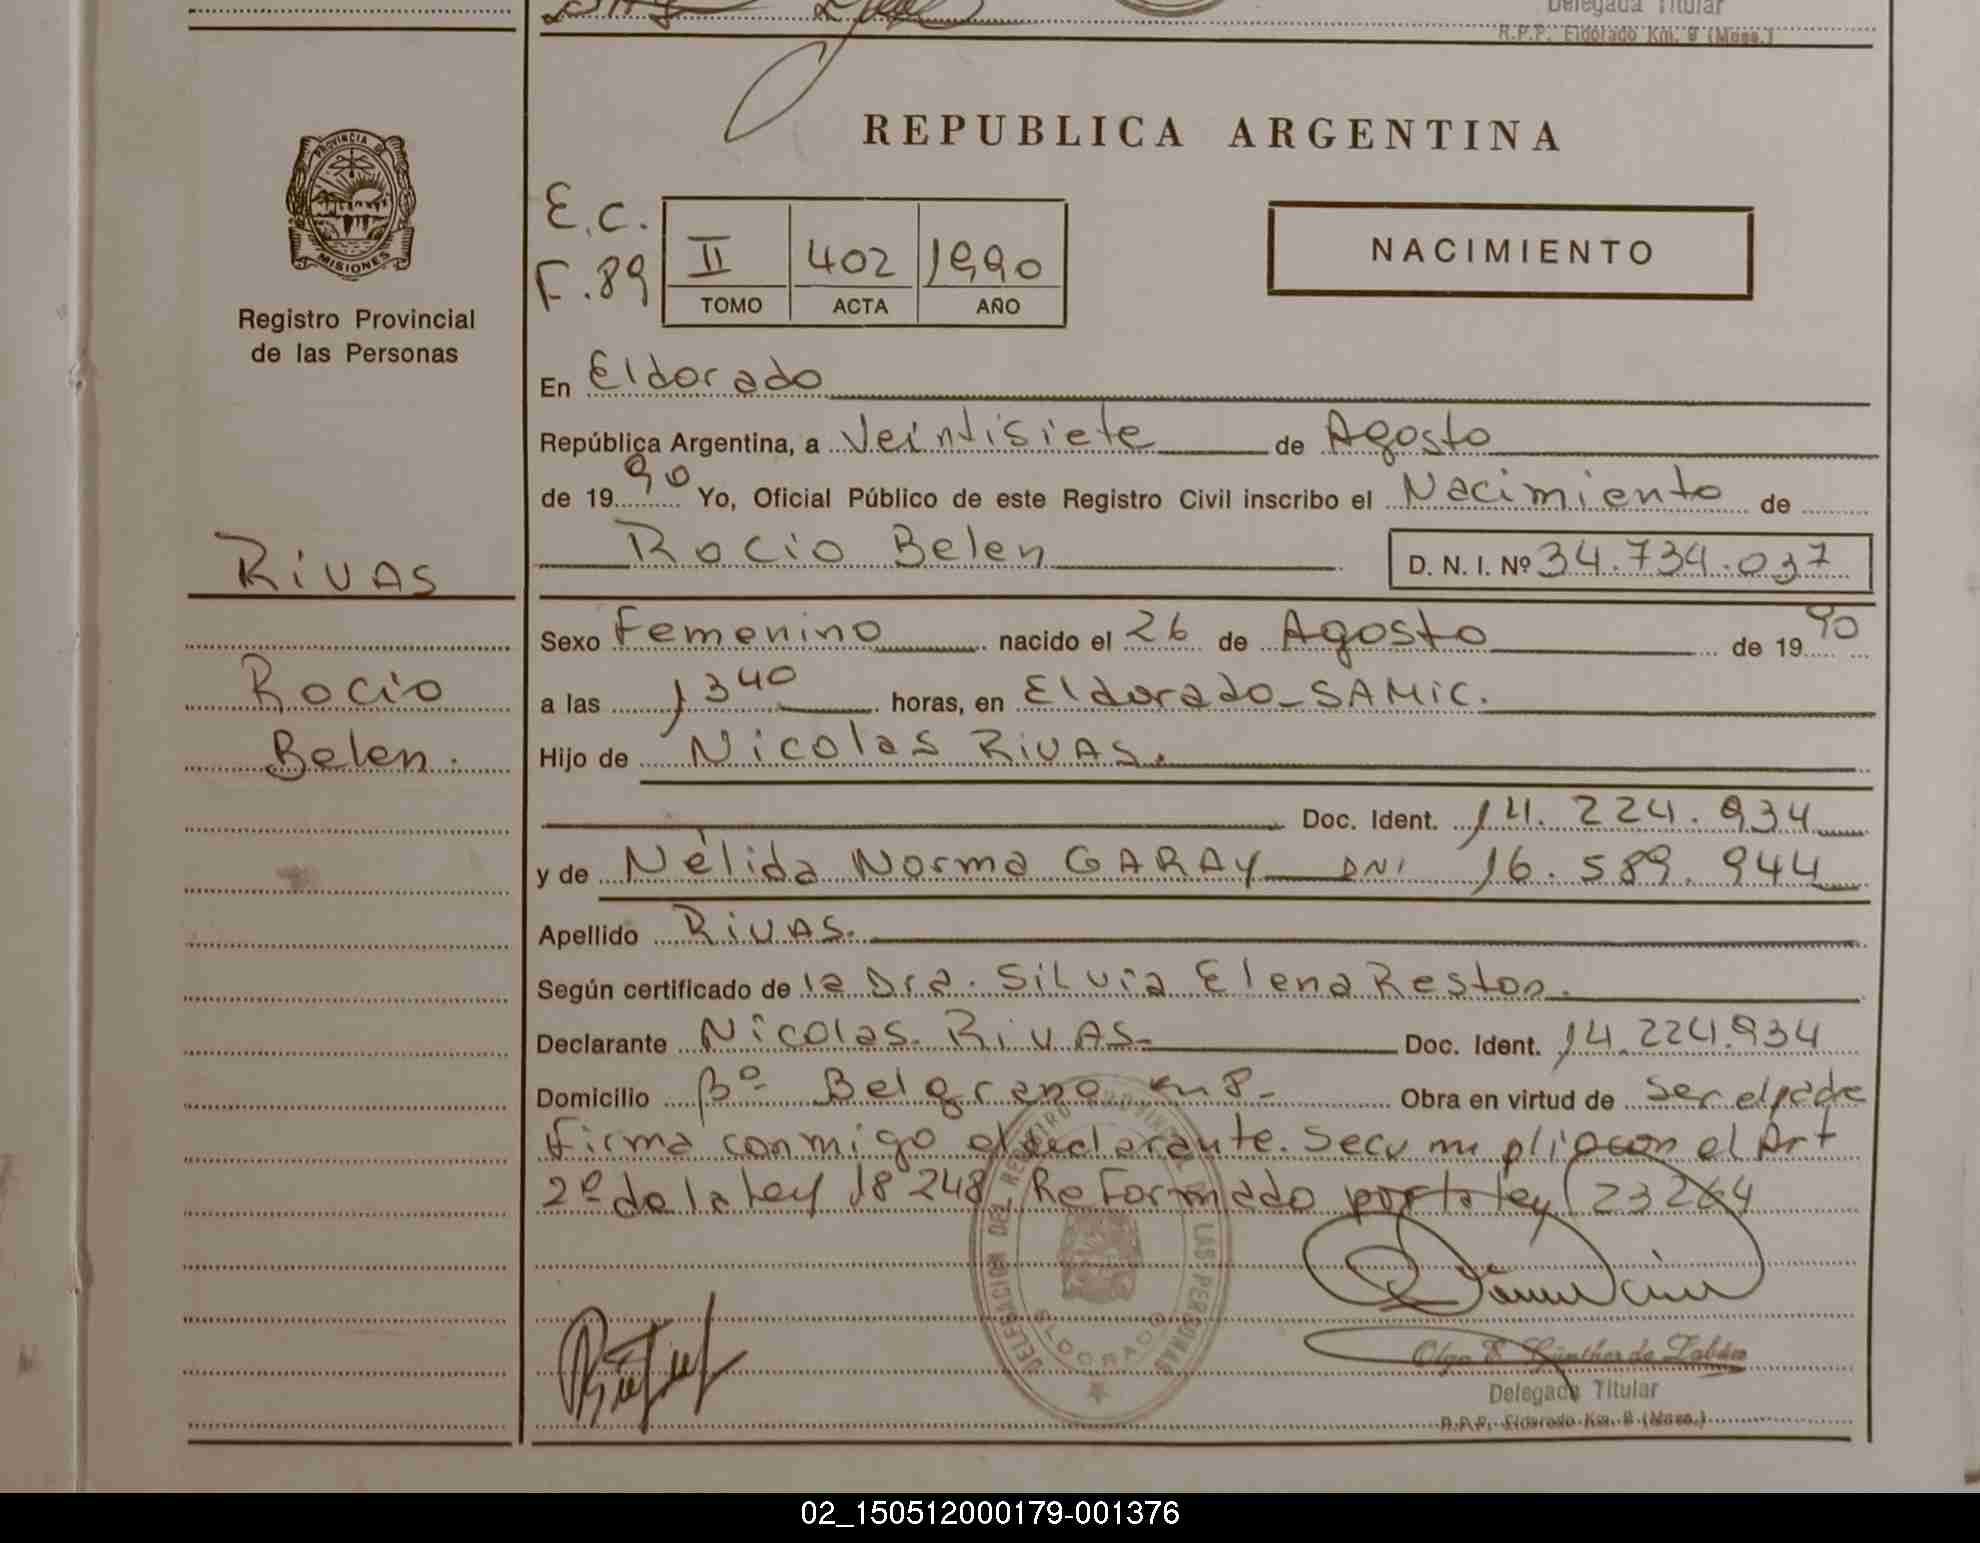 Delegada Titular
R.P.P. Eldorado Km. 9 (Mnes.)
REPUBLICA ARGENTINA
PROVINCIA DE
MISIONES
Registro Provincial
de las Personas
E.C.
F.89
II 402 1990
TOMO ACTA AÑO
NACIMIENTO
En Eldorado
República Argentina, a Veintisiete de Agosto
de 19 90 Yo, Oficial Público de este Registro Civil inscribo el Nacimiento de
RIVAS
Rocio Belen D. N. I. Nº 34.734.037
Sexo Femenino nacido el 26 de Agosto de 19 90
Rocio
a las 1340 horas, en Eldorado-SAMIC.
Belen.
Hijo de Nicolas RIVAS.
Doc. Ident. 14.224.934
y de Nélida Norma GARAY DNI 16.589.944
Apellido RIVAS.
Según certificado de la Dra. Silvia Elena Reston.
Declarante Nicolas RIVAS- Doc. Ident. 14.224.934
Domicilio Bº Belgrano km 8- Obra en virtud de ser el padre
firma conmigo el declarante. Se cumplio con el Art
2º de la Ley 18248 Reformado por la ley 23264
DELEGACION DEL REGISTRO PROVINCIAL DE LAS PERSONAS
ELDORADO
Delegada Titular
R.P.P. Eldorado Km. 9 (Mnes.)
02_150512000179-001376